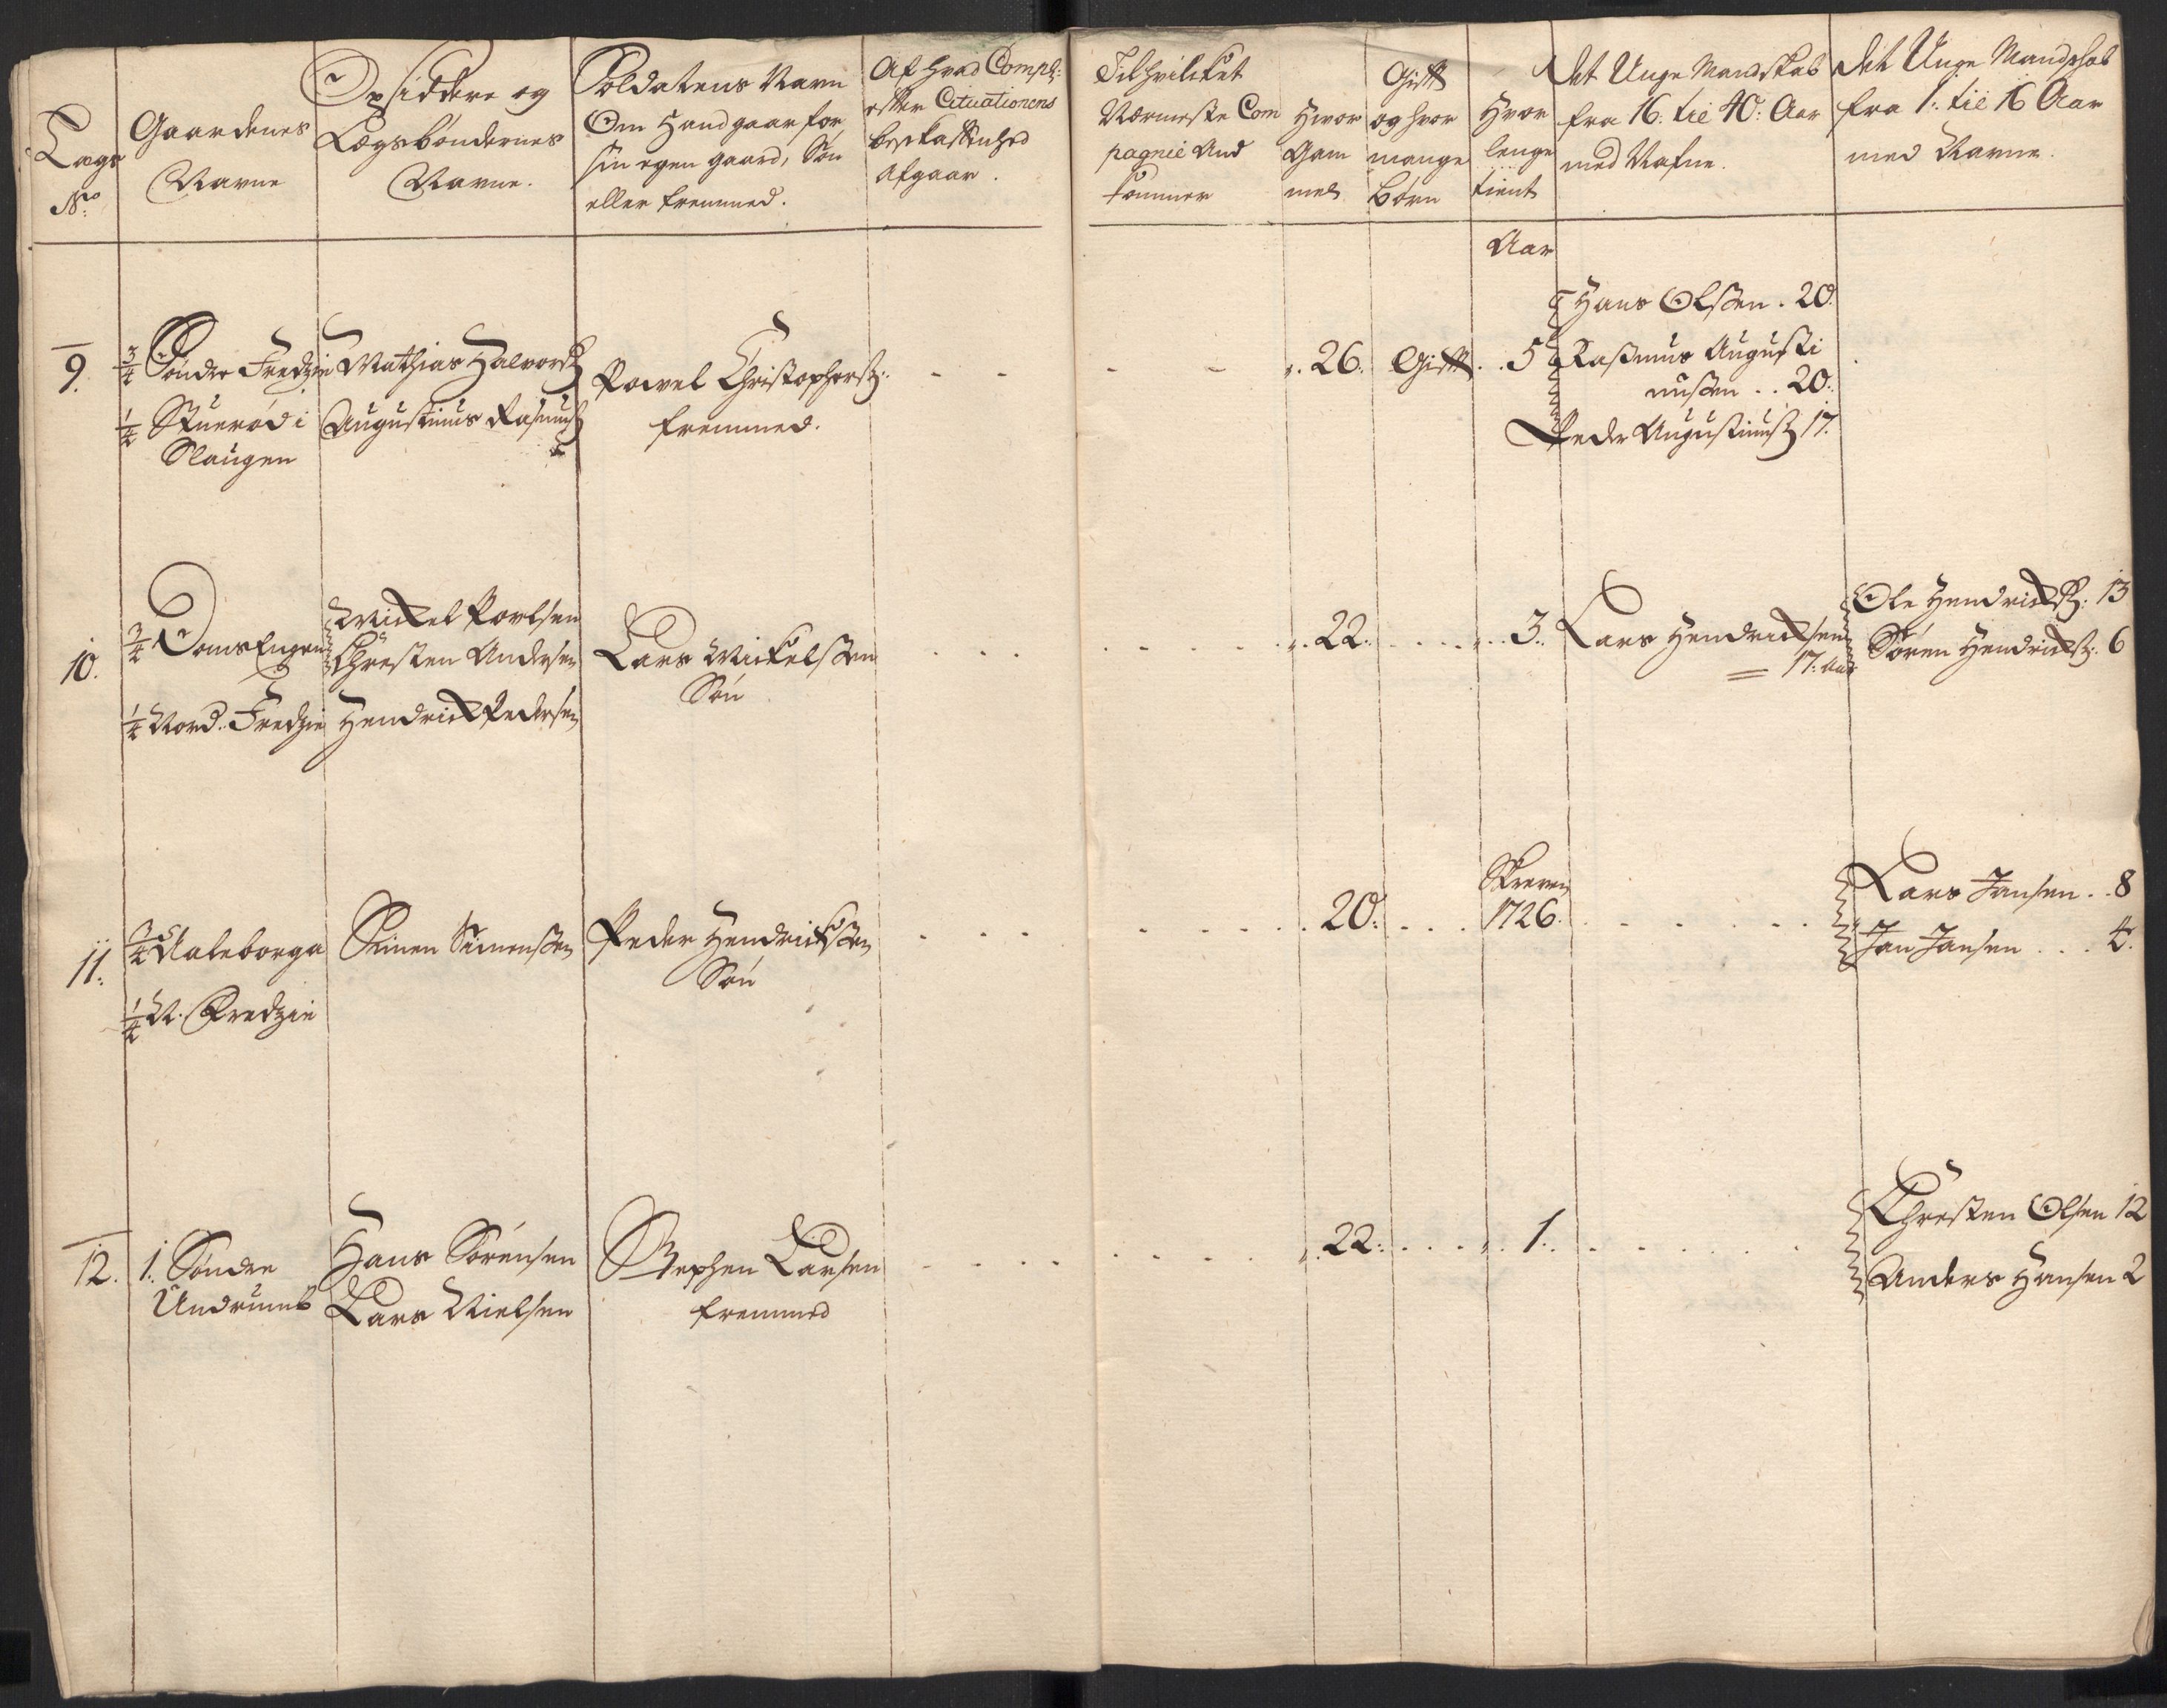 Lægs
No
Gaardenes
Navne
Opsiddere og
Lægsbøndernes
Navne.
Soldatens Navn
Om Hand gaar for
sin egen gaard, Søn
eller fremmed.
Af hvad Comp:
efter Cituationens
beskaffenhed
afgaar.
Til hvilket
Nærmeste Com
pagnie And
kommer
Hvor
Gam
mel
Gift
og hvor
mange
børn
Hvor
lenge
tient
Det Unge Mandskab
fra 16. til 40: Aar
med Nafne.
Det Unge Mandskab
fra 1: til 16 Aar
med Navne.
Aar
9.
3/4 Søndre Fredzie
1/4 Stuerød i
Slaugen
Mathias Halvors
Augustinus Rasmus
Powel Christophers:
fremmed.
26. Gift. 5
Hans Olssen. 20.
Rassmus Augusti
nussen .. 20.
Peder Augustinus 17.
10.
3/4 Doms Engen
1/4 Nord. Fredzie
Mickel Povlsen
Chresten Andersen
Hendrick Pedersen
Lars Mickelssen
Søn
22. 3.
Lars Hendricksen
17. Aar
Ole Hendricks: 13
Søren Hendricks: 6
11.
3/4 Valeborga
1/4 N. Fredzie
Simen Simenssen
Peder Hendrickssen
Søn
20.
Skreven
1726.
Lars Jansen .. 8
Jan Jansen ... 4.
12.
1. Søndre
Undrumb
Hans Sørensen
Lars Nielsen
Stephen Larsen
fremmed
22: 1.
Chresten Olsen 12
Anders Hansen 2